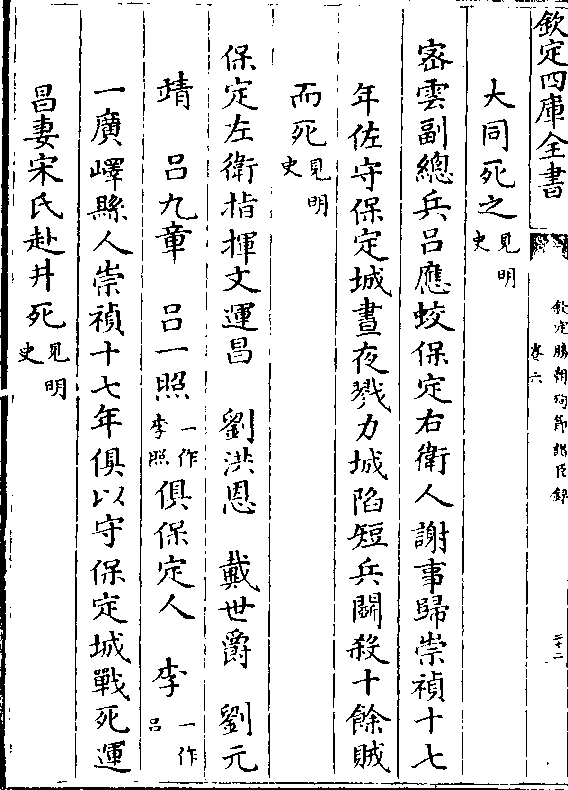 欽定四庫全書
欽定勝朝殉節諸臣錄
卷六
二十二
大同死之見明史
密雲副總兵吕應蛟保定右衛人謝事歸崇禎十七
年佐守保定城晝夜戮力城陷短兵鬭殺十餘賊
而死見明史
保定左衛指揮文運昌　劉洪恩　戴世爵　劉元
靖　吕九章　吕一照一作李照俱保定人　李一作吕
一廣嶧縣人崇禎十七年俱以守保定城戰死運
昌妻宋氏赴井死見明史